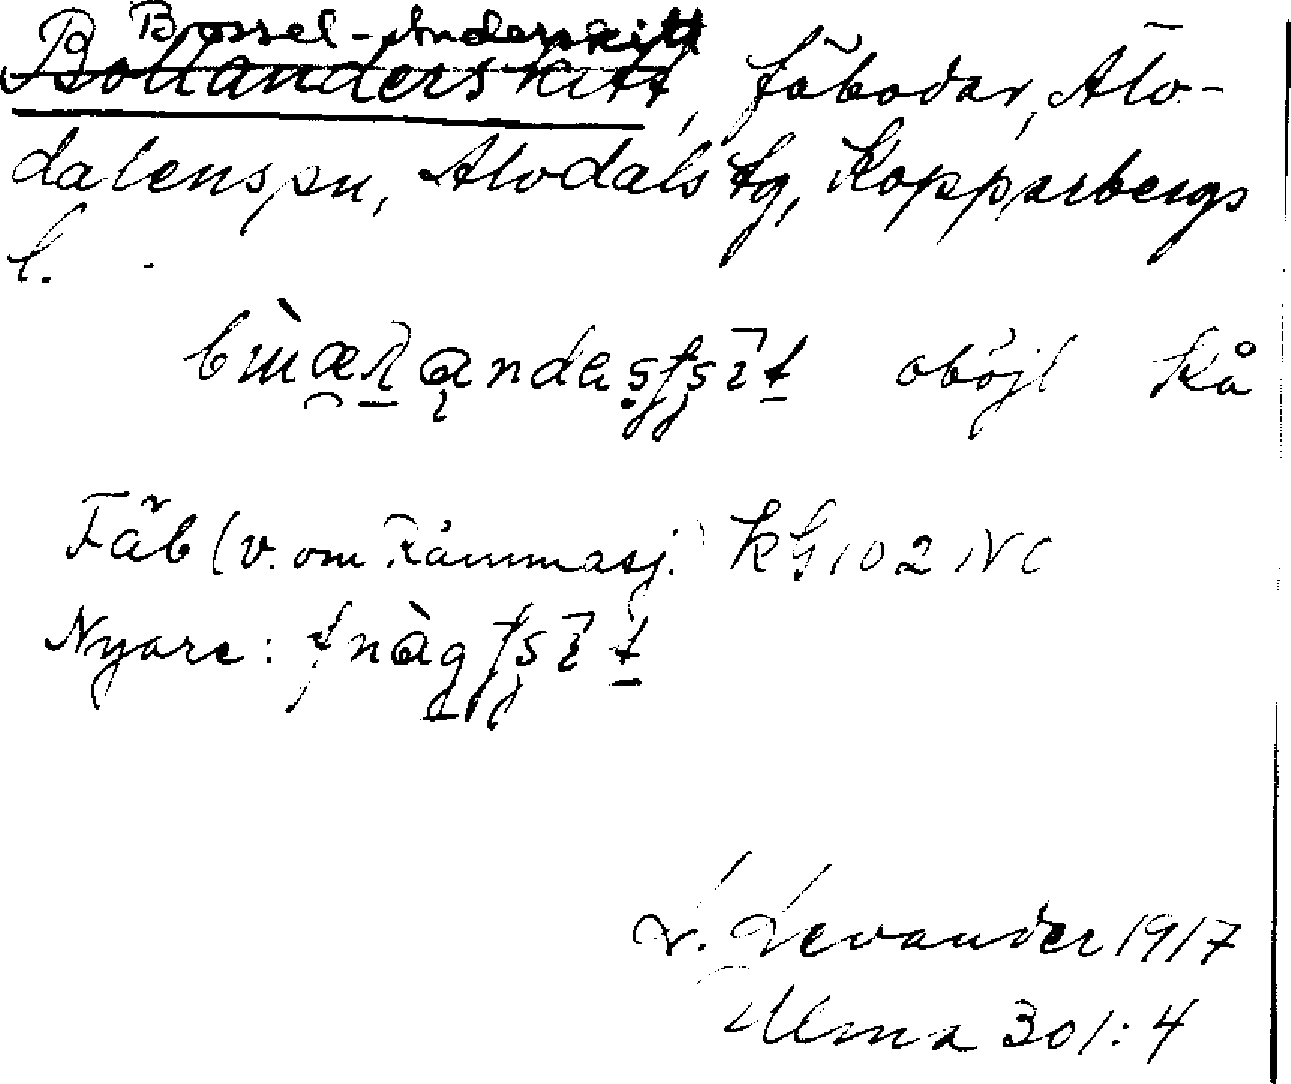 Bossel-Anderskitt
Bollanderskitt, fäbodar, Älv-
dalens sn, Älvdals tg, Kopparbergs
l.
oböjl kå
Fäb (v. om Råmmasj.) KG 102 NC
Nyare:
L. Levander 1917
Ulma 301:4